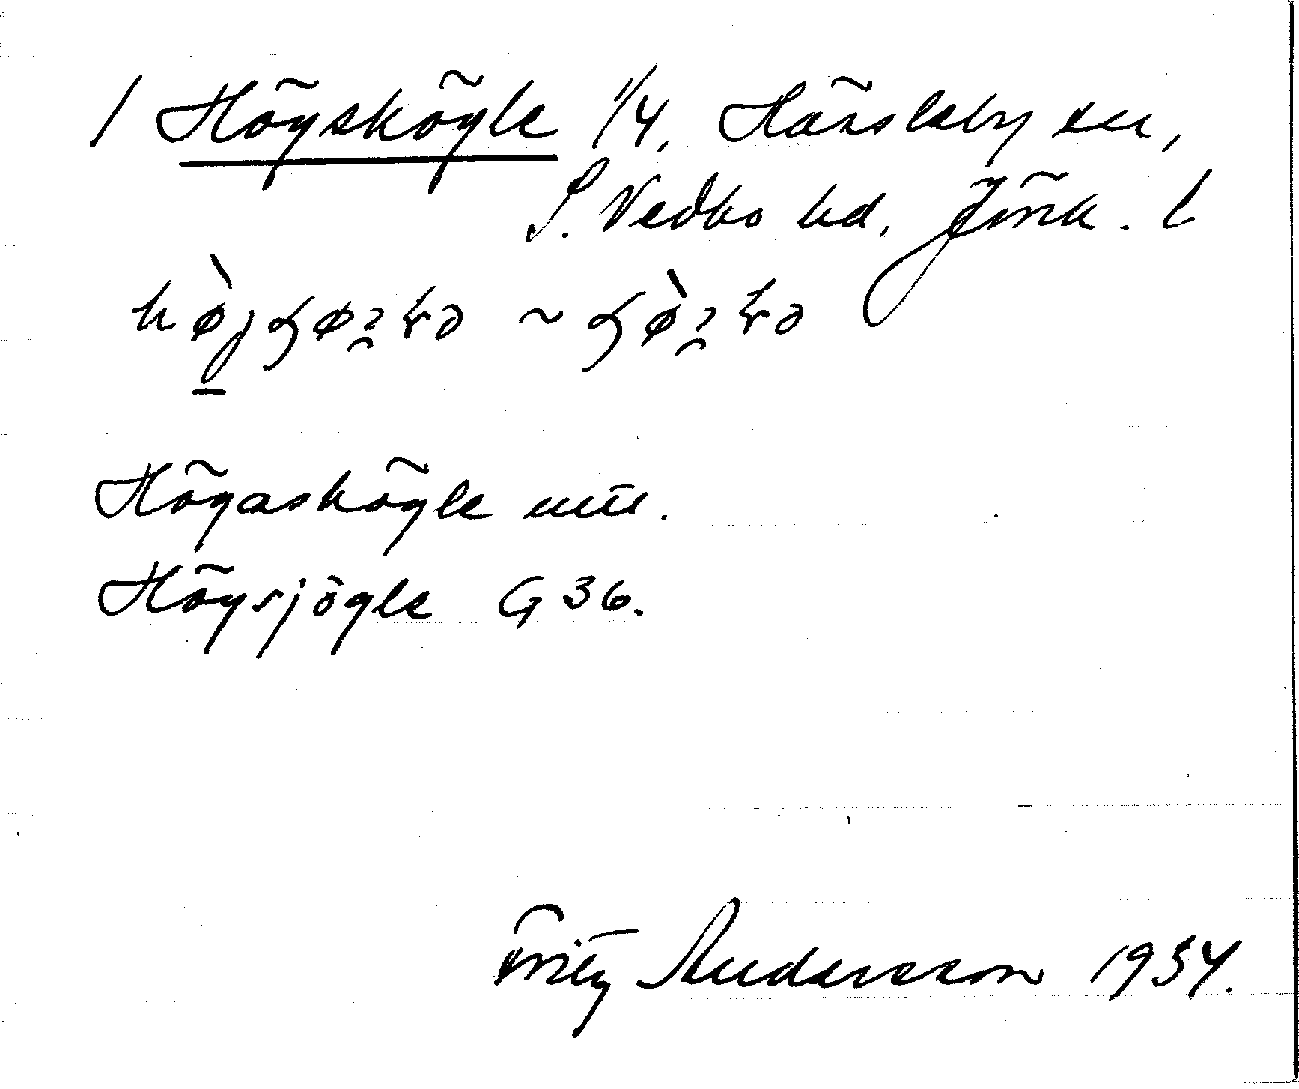 1 Högskögle 1/4, Hässleby sn,
S. Vedbo hd, Jönk. l
Högaskögle utt.
Högsjögle G 36.
Fritz Andersson 1934.